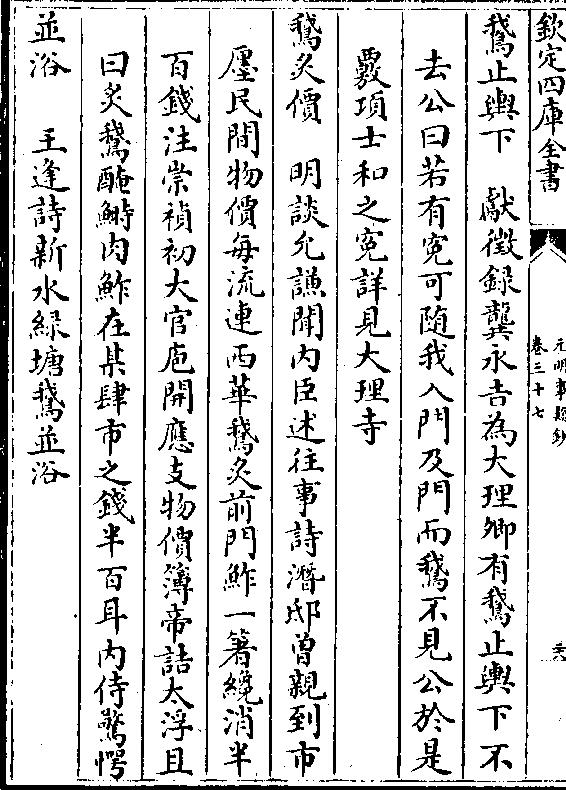 欽定四庫全書
元明事類鈔
卷三十七
鵞止輿下　獻徵録龔永吉為大理卿有鵞止輿下不
去公曰若有寃可隨我入門及門而鵞不見公於是
覈項士和之寃詳見大理寺
鵞炙價　明談允謙聞内臣述往事詩潛邸曾親到市
廛民間物價每流連西華鵞炙前門鮓一箸纔消半
百錢注崇禎初大官庖開應支物價簿帝詰太浮且
曰炙鵞醃鰣肉鮓在某肆市之錢半百耳内侍驚愕
並浴　王逢詩新水緑塘鵞並浴